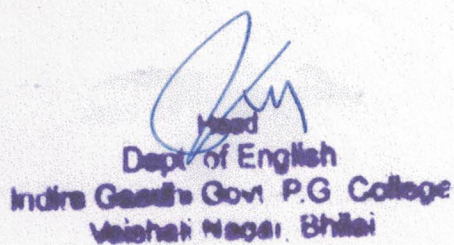 Head
Dept of English
Indira Gandhi Govt P.G College
Vaishali Nagar, Bhilai